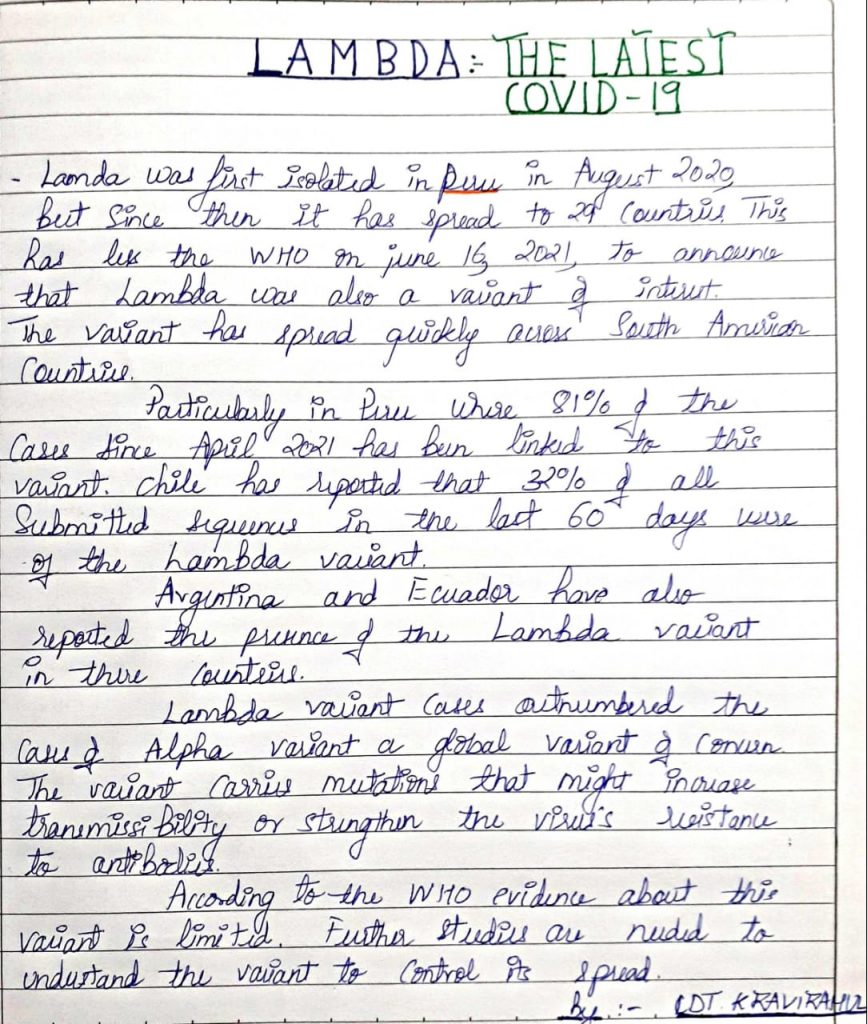 LAMBDA:- THE LATEST
COVID-19
- Lamda was first isolated in Peru in August 2020,
but Since then it has spread to 29 Countries. This
has led the WHO on june 16, 2021, to announce
that Lambda was also a variant of interest.
The variant has spread quickly across South American
Countries.
Particularly in Peru where 81% of the
Cases since April 2021 has been linked to this
variant. chile has reported that 32% of all
Submitted sequences in the last 60 days were
of the Lambda variant.
Argentina and Ecuador have also
reported the presence of the Lambda variant
in there Countries.
Lambda variant Cases outnumbered the
Cases of Alpha variant a global variant of Concern.
The variant Carries mutations that might increase
transmissibility or strengthen the virus's resistance
to antibodies.
According to the WHO evidence about this
variant is limited. Further studies are needed to
understand the variant to Control its spread.
By :- CDT. K RAVI RAHUL